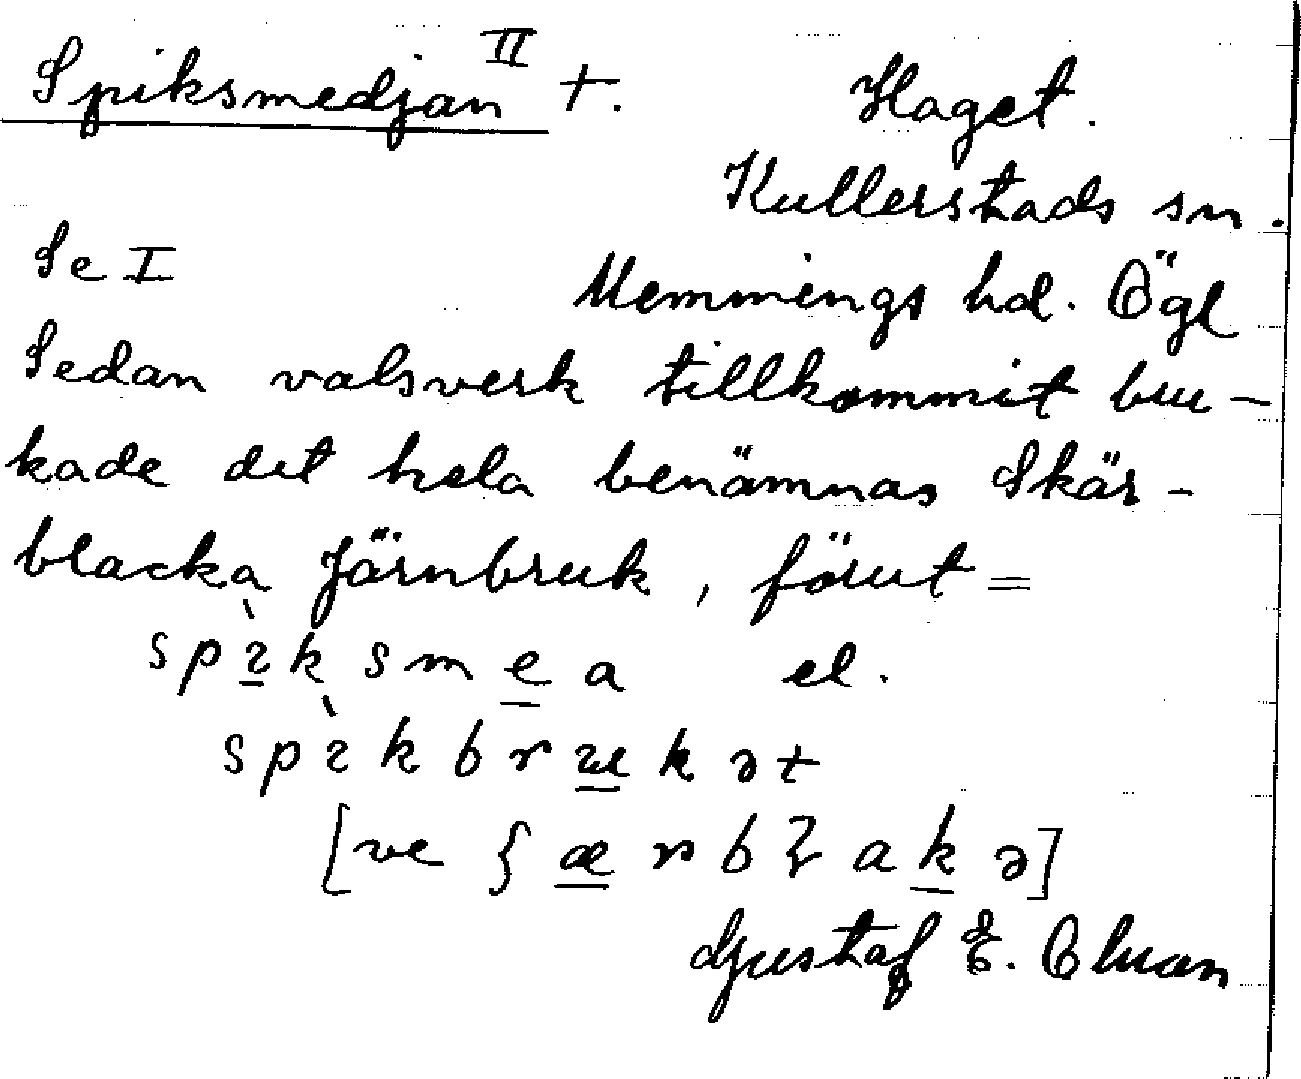 Spiksmedjan II +. Haget.
Kullerstads sn.
Se I
Memmings hd. Ögl
Sedan valsverk tillkommit bru-
kade det hela benämnas Skär-
blacka Järnbruk, förut =
spìksmea el.
spìkbrukət
[ve ʃærbɽakə]
Gustaf E.